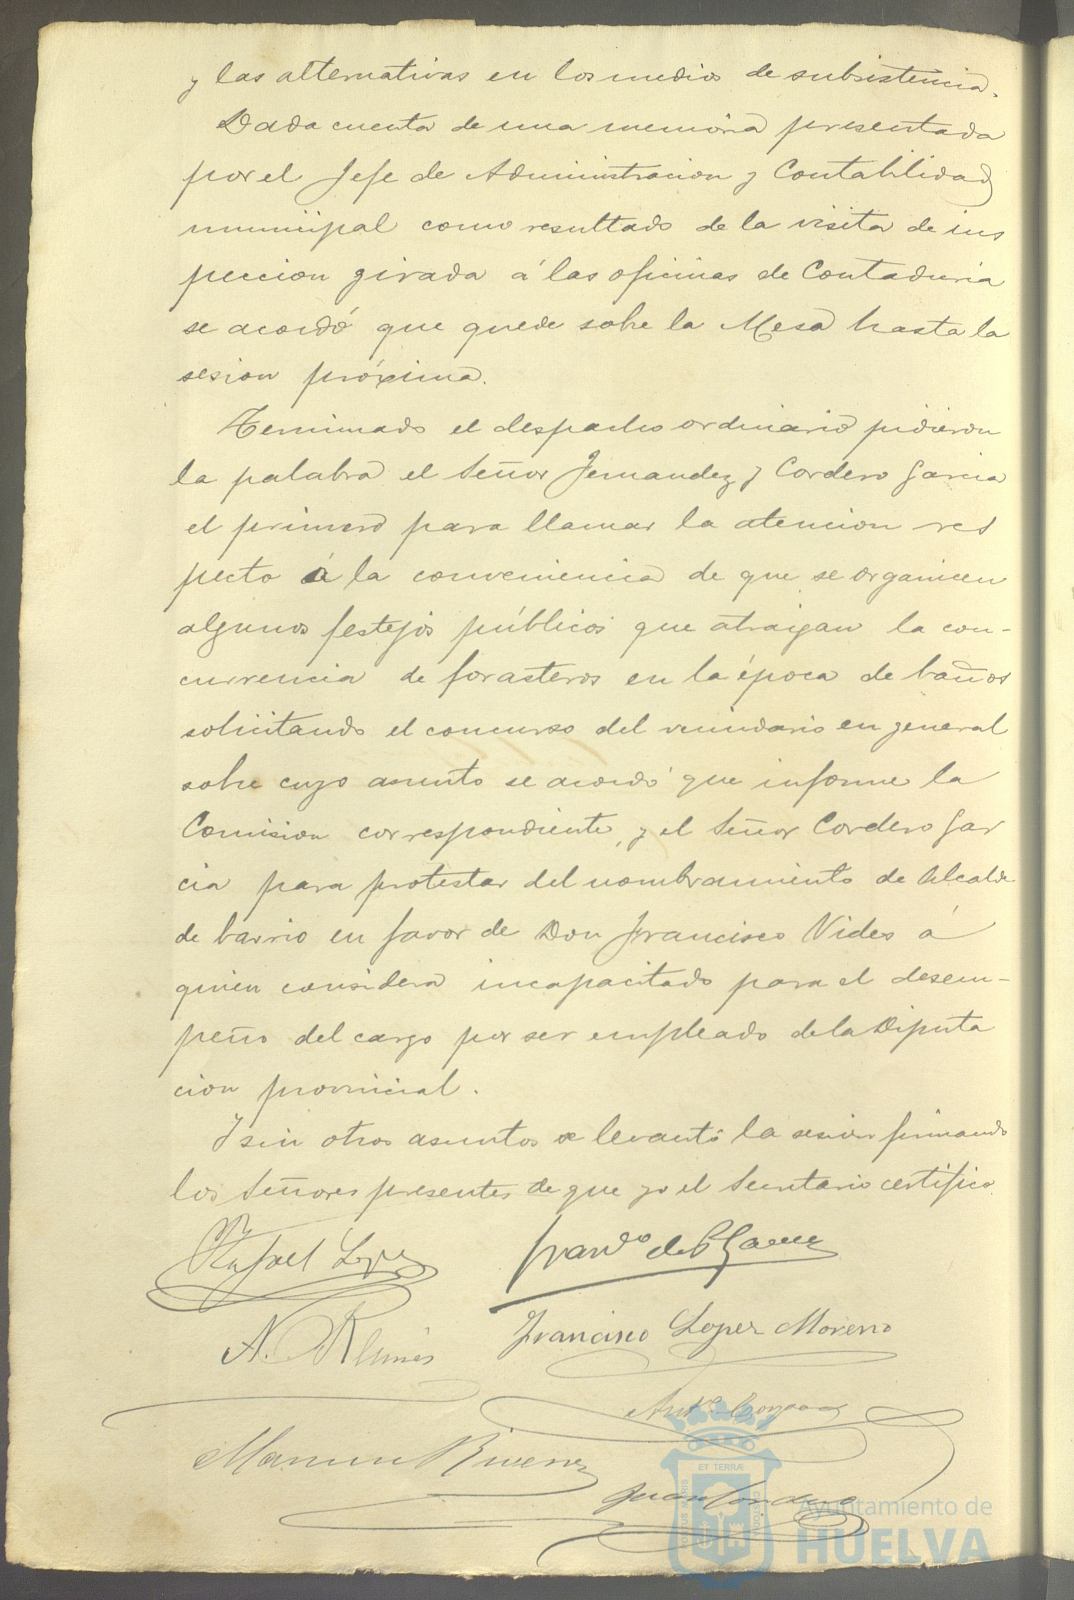 y las alternativas en los medios de subsistencia.
Dada cuenta de una memoria presentada
por el Jefe de Administracion y Contabilidad
municipal como resultado de la visita de ins
peccion girada á las oficinas de Contaduria
se acordó que quede sobre la Mesa hasta la
sesion próxima.
Terminado el despacho ordinario pidieron
la palabra el Señor Fernandez y Cordero Garcia
el primero para llamar la atencion res
pecto á la conveniencia de que se organicen
algunos festejos públicos que atraigan la con-
currencia de forasteros en la época de baños
solicitando el concurso del vecindario en general
sobre cuyo asunto se acordó que informe la
Comision correspondiente, y el Señor Cordero Gar
cia para protestar del nombramiento de Alcalde
de barrio en favor de Don Francisco Vides á
quien considera incapacitado para el desem-
peño del cargo por ser empleado de la Diputa
cion provincial.
Y sin otros asuntos se levantó la sesion firmando
los Señores presentes de que yo el Secretario certifico.
Rafael Lopez
Francisco Lopez Moreno
A.
Manuel
Juan Cordero
ET TERRÆ
Ayuntamiento de
HUELVA